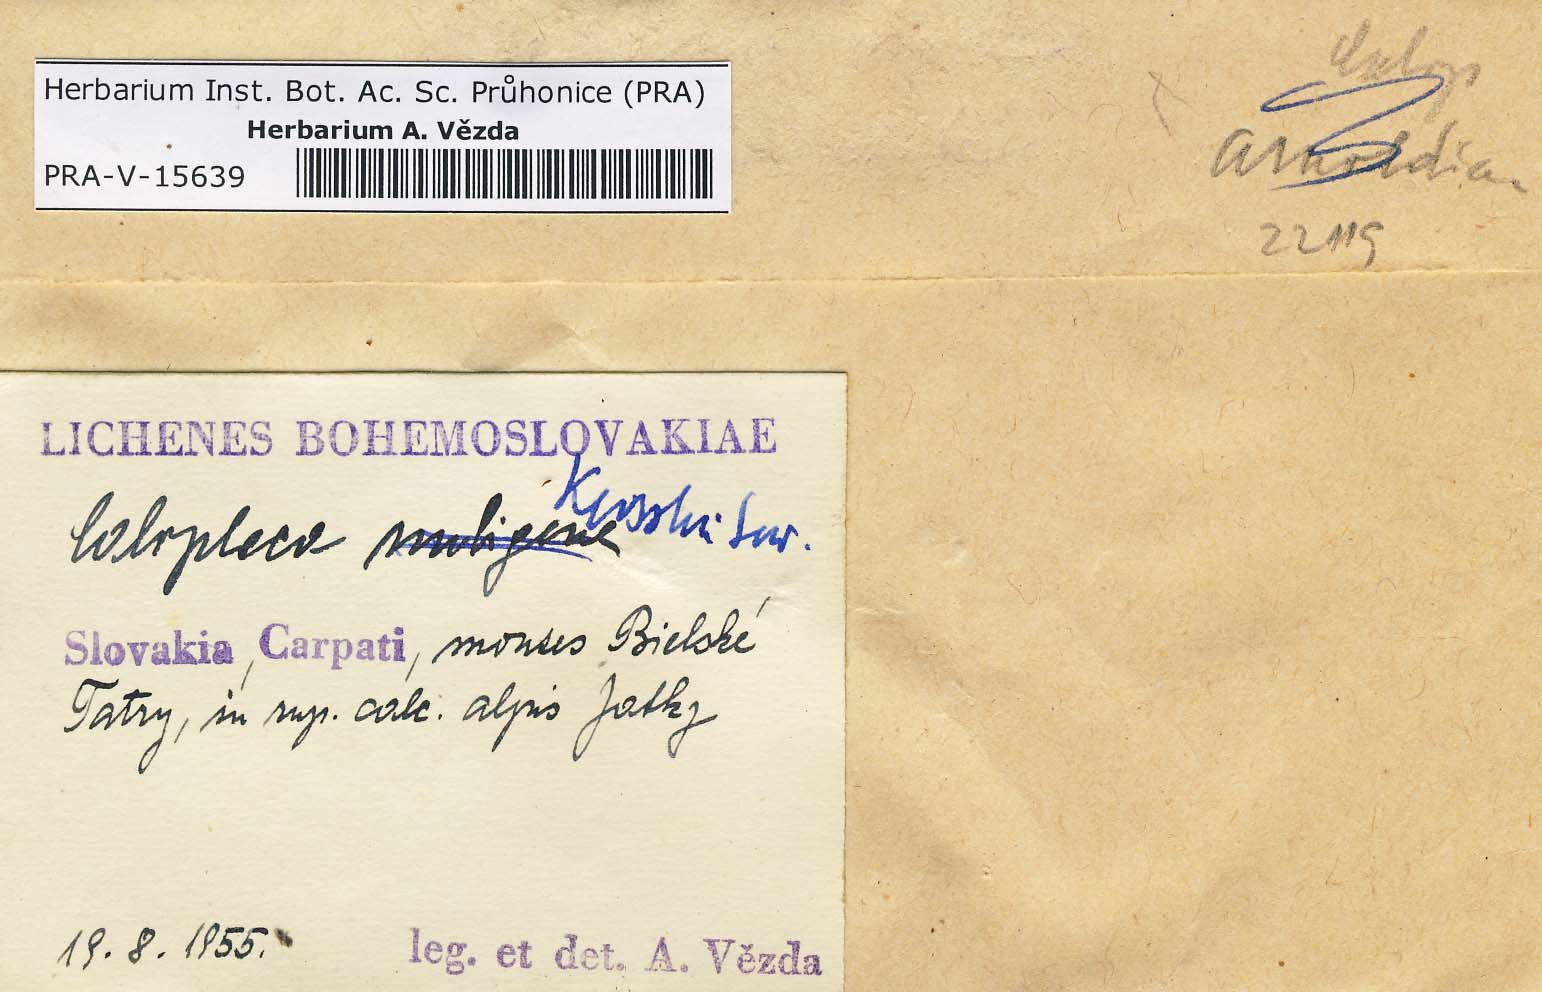 Herbarium Inst. Bot. Ac. Sc. Průhonice (PRA)
Herbarium A. Vězda
PRA-V-15639
22119
LICHENES BOHEMOSLOVAKIAE
Caloplaca nubigena
Slovakia, Carpati, montes Bielské
Tatry, in rup. calc. alpis Jatky
19. 8. 1955.
leg. et det. A. Vězda